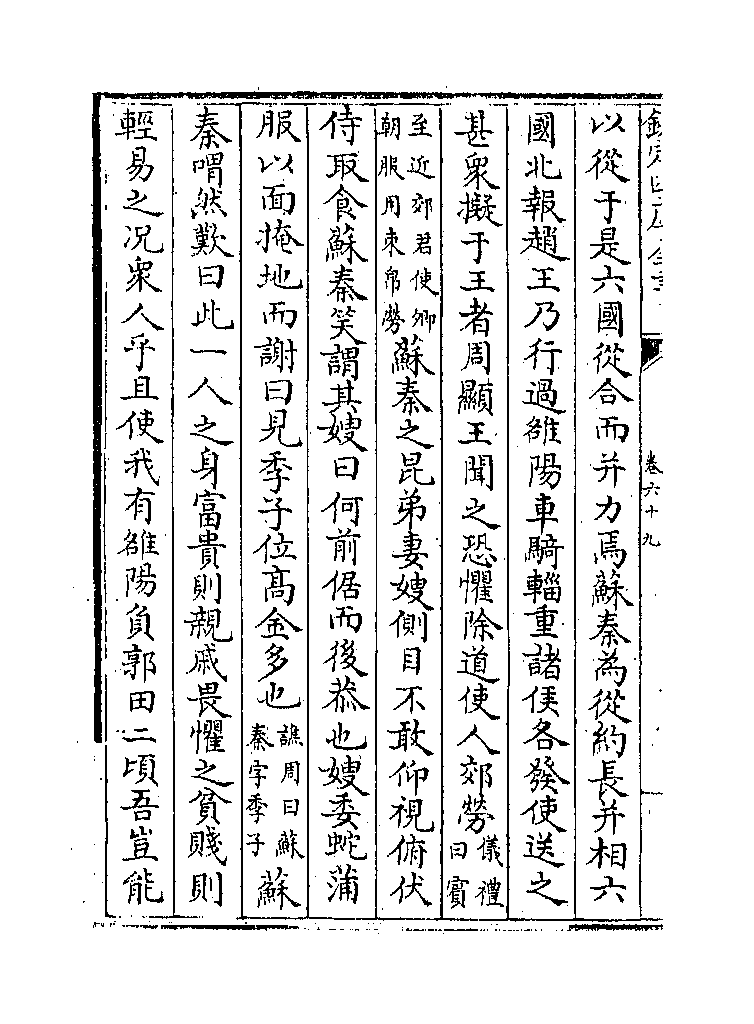 欽定四庫全書
卷六十九
以從于是六國從合而并力焉蘇秦為從約長并相六
國北報趙王乃行過雒陽車騎輜重諸侯各發使送之
甚衆擬于王者周顯王聞之恐懼除道使人郊勞儀禮曰賓
至近郊君使卿朝服用束帛勞蘇秦之昆弟妻嫂側目不敢仰視俯伏
侍取食蘇秦笑謂其嫂曰何前倨而後恭也嫂委蛇蒲
服以面掩地而謝曰見季子位髙金多也譙周曰蘇秦字季子蘇
秦喟然歎曰此一人之身富貴則親戚畏懼之貧賤則
輕易之况衆人乎且使我有雒陽負郭田二頃吾豈能